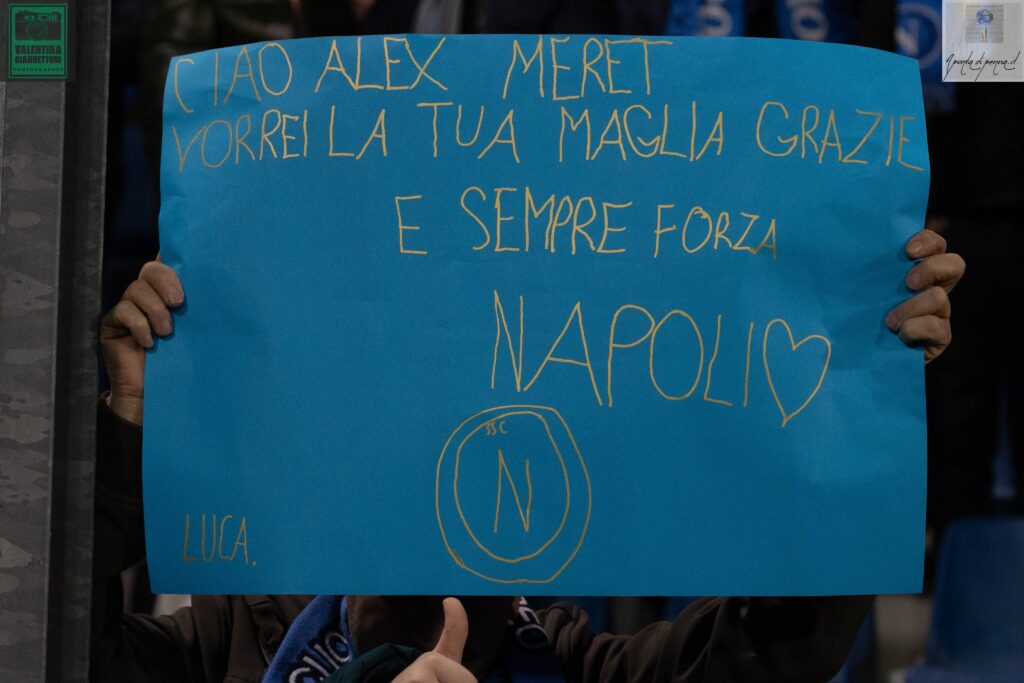 VALENTINA
GIANNETTONI
PHOTOGRAPHER
A punta di penna.it
CIAO ALEX MERET
VORREI LA TUA MAGLIA GRAZIE
E SEMPRE FORZA
NAPOLI
SSC
N
LUCA.